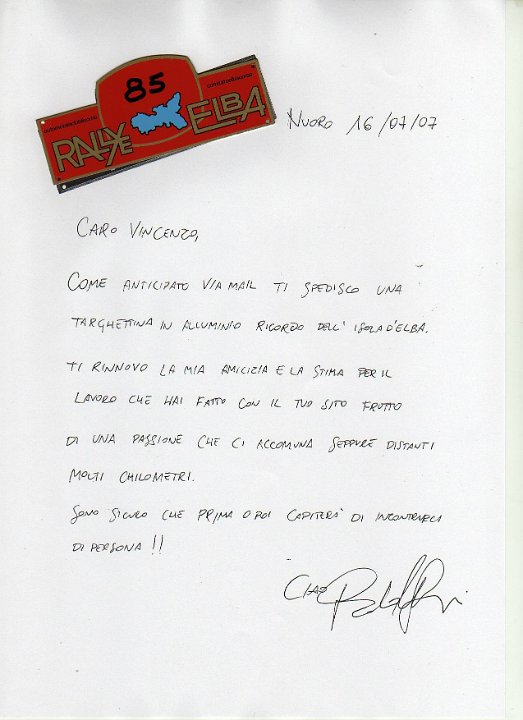 85
RALLYE ELBA
NUORO 16/07/07
CARO VINCENZO,
COME ANTICIPATO VIA MAIL TI SPEDISCO UNA
TARGHETTINA IN ALLUMINIO RICORDO DELL'ISOLA D'ELBA.
TI RINNOVO LA MIA AMICIZIA E LA STIMA PER IL
LAVORO CHE HAI FATTO CON IL TUO SITO FRUTTO
DI UNA PASSIONE CHE CI ACCOMUNA SEPPURE DISTANTI
MOLTI CHILOMETRI.
SONO SICURO CHE PRIMA O POI CAPITERÀ DI INCONTRARCI
DI PERSONA !!
CIAO